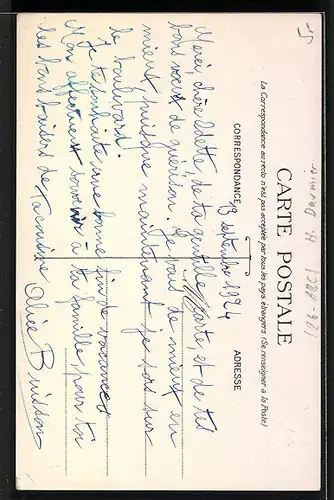 CARTE POSTALE
La Correspondance au recto n'est pas acceptée par tous les pays étrangers (Se renseigner à la Poste)
CORRESPONDANCE
ADRESSE
3 septembre 1924
Merci, chère Odette, de ta gentille carte, et de tes
bons voeux de guérison. Je vais de mieux en
mieux puisque maintenant je sors sur
le boulevard.
Je te souhaite une bonne fin de vacances
Mon affectueux souvenir à ta famille, pour toi
les bons baisers de ta amie
Alice Buisson
H. Daumier